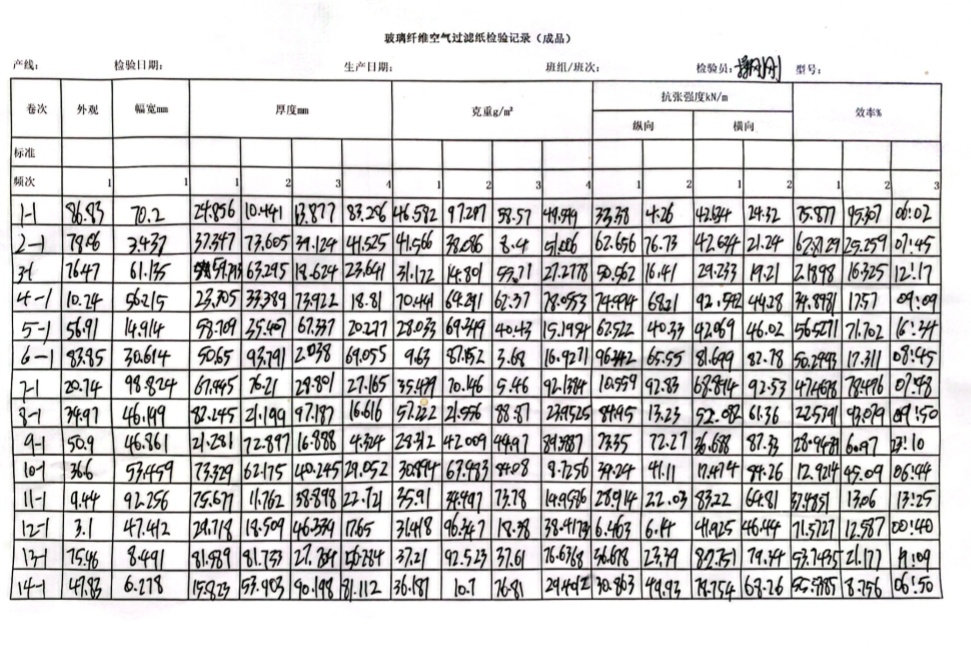 玻璃纤维空气过滤纸检验记录（成品）
产线： 检验日期： 生产日期： 班组/班次： 检验员： 型号：
卷次 外观 幅宽mm 厚度mm 克重g/m² 抗张强度kN/m 效率%
纵向 横向
标准
频次 1 1 1 2 3 4 1 2 3 4 1 2 1 2 1 2 3
1-1 86.83 70.2 24.856 10.441 13.877 83.286 46.592 97.287 58.57 49.549 33.38 4.26 42.634 24.32 75.877 95.307 06:02
2-1 79.06 3.437 37.347 73.605 39.124 41.525 41.566 38.086 8.4 51.006 62.656 76.73 42.624 21.24 62.8129 25.259 07:45
3-1 76.47 61.135 59.793 63.295 18.624 23.641 31.172 14.801 55.71 27.2778 50.562 16.41 29.233 19.21 2.1898 16.325 12:17
4-1 10.24 56.215 23.705 33.389 73.922 18.81 70.441 64.291 62.37 78.0553 74.494 68.21 92.542 44.28 34.8981 17.57 09:09
5-1 56.91 14.914 58.709 35.407 67.337 20.277 28.033 69.349 40.43 15.1954 62.522 40.33 42.069 46.02 56.5271 71.702 16:34
6-1 83.85 30.614 50.65 93.791 2.038 69.055 9.63 87.152 3.68 16.9271 96.342 65.55 81.699 82.78 50.2993 17.311 08:45
7-1 20.74 98.824 67.445 76.21 28.801 27.165 35.439 70.146 5.46 92.1384 10.559 92.83 68.814 92.53 47.4678 78.476 07:48
8-1 34.97 46.149 82.245 21.199 97.187 16.616 57.222 21.556 88.87 23.9525 84.95 13.23 52.082 61.36 22.5791 93.079 09:50
9-1 50.9 46.861 21.281 72.897 16.888 4.324 29.312 42.009 44.97 89.3887 73.35 72.27 26.688 87.32 28.9481 6.097 23:10
10-1 36.6 53.459 73.329 62.175 40.245 29.052 30.894 67.983 84.08 8.7256 39.24 41.11 17.474 84.26 12.9214 45.09 06:44
11-1 9.44 92.256 75.677 11.762 58.898 22.721 35.91 34.497 73.78 14.9586 28.914 22.03 83.22 64.81 37.4851 13.06 13:25
12-1 3.1 47.412 29.718 18.509 46.339 17.65 31.418 96.347 18.38 38.4179 6.463 6.14 41.925 46.44 71.5727 12.587 00:40
13-1 75.46 8.491 81.989 81.753 27.784 56.284 37.21 92.523 37.61 76.6368 36.678 23.39 82.751 79.34 53.7435 21.177 19:09
14-1 47.83 6.278 15.823 53.903 90.198 81.112 36.187 10.7 76.81 29.4492 30.863 49.93 78.754 68.26 55.5985 8.756 06:50